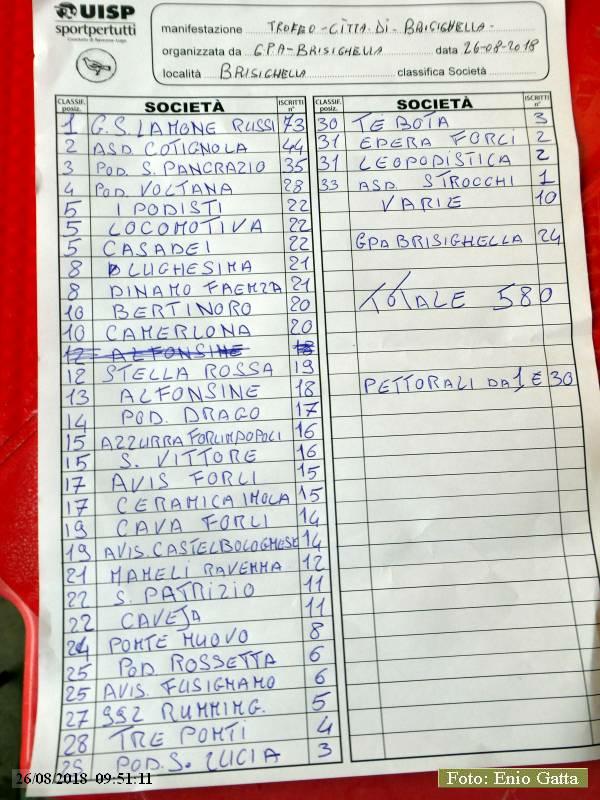 UISP
sportpertutti
manifestazione TROFEO-CITTA-DI-BRISIGHELLA-
organizzata da G.P.A-BRISIGHELLA data 26-08-2018
località BRISIGHELLA classifica Società
CLASSIF. posiz. SOCIETÀ ISCRITTI n°
1 G.S. LAMONE RUSSI 73
2 ASD COTIGNOLA 44
3 POD. S. PANCRAZIO 35
4 POD. VOLTANA 28
5 I PODISTI 22
5 LOCOMOTIVA 22
5 CASADEI 22
8 LUGHESINA 21
8 DINAMO FAENZA 21
10 BERTINORO 20
10 CAMERLONA 20
12 ALFONSINE 18
12 STELLA ROSSA 19
13 ALFONSINE 18
14 POD. DRAGO 17
15 AZZURRA FORLIMPOPOLI 16
15 S. VITTORE 16
17 AVIS FORLI 15
17 CERAMICA IMOLA 15
19 CAVA FORLI 14
19 AVIS CASTELBOLOGNESE 14
21 MAMELI RAVENNA 12
22 S. PATRIZIO 11
22 CAVEJA 11
24 PONTE NUOVO 8
25 POD. ROSSETTA 6
25 AVIS. FUSIGNANO 6
27 992 RUNNING. 5
28 TRE PONTI 4
29 POD. S. LUCIA 3
CLASSIF. posiz. SOCIETÀ ISCRITTI n°
30 TE BOTA 3
31 EDERA FORLI 2
31 LEOPODISTICA 2
33 ASD. STROCCHI 1
VARIE 10
GPA BRISIGHELLA 24
TOTALE 580
PETTORALI DA 1 € 30
26/08/2018 09:51:11
Foto: Enio Gatta